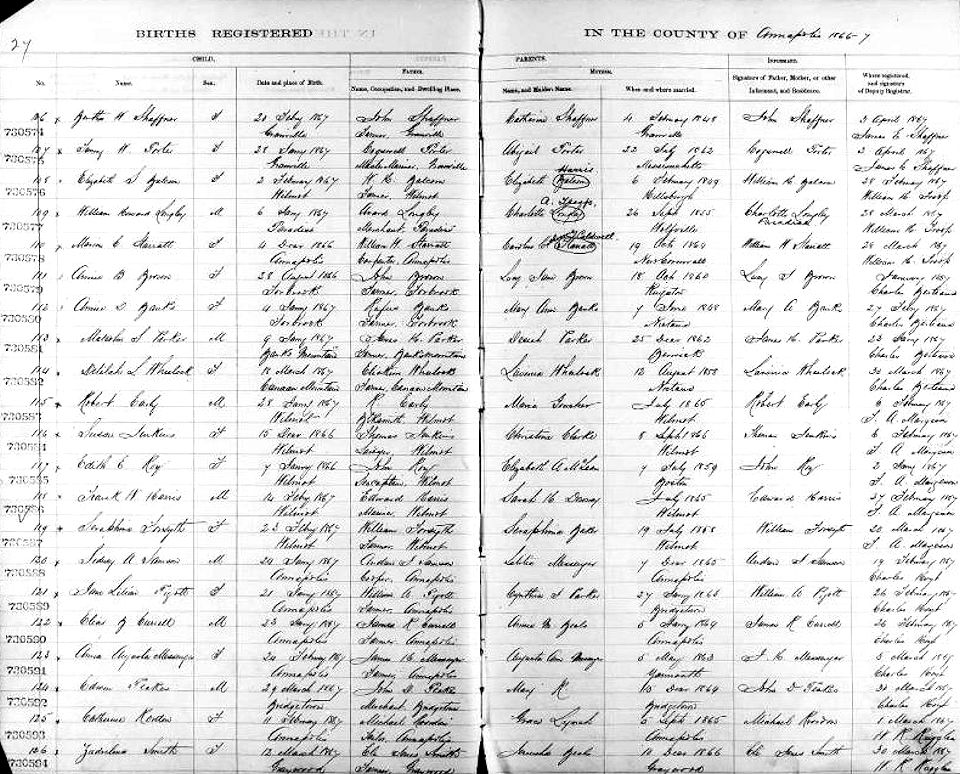 27
BIRTHS REGISTERED IN THE COUNTY OF Annapolis 1866-7
CHILD. PARENTS. INFORMANT.
FATHER. MOTHER.
No. Name. Sex. Date and place of Birth. Name, Occupation, and Dwelling Place. Name, and Maiden Name. When and where married. Signature of Father, Mother, or other Informant, and Residence. Where registered, and signature of Deputy Registrar.
106 Bertha W Shaffner F 21 Feby 1867 John Shaffner Catherine Shaffner 4 February 1848 John Shaffner 2 April 1867
730574 Granville Farmer Granville Granville James E Shaffner
107 Fanny W. Porter F 28 Jany 1867 Cogswell Porter Abigail Porter 22 July 1862 Cogswell Porter 2 April 1867
730575 Granville Granville Harris Massachusetts James E Shaffner
108 Elizabeth S Balcom F 2 February 1867 W. H. Balcom Elizabeth Balcom 6 February 1849 William H Balcom 28 February 1867
730576 Wilmot Farmer Wilmot Hillsburgh William H. Troop
109 William Howard Longley M 6 Jany 1867 Avard Longley Charlotte A. Longley 26 Sept 1855 Charlotte Longley 28 March 1867
730577 Paradise Merchant, Paradise Wolfville Paradise William H. Troop
110 Marion E Starratt F 4 Decr 1866 William H Starratt Caroline Starratt Caldwell 19 Oct 1864 William H Starratt 28 March 1867
730578 Annapolis Carpenter, Annapolis New Cornwall William H. Troop
111 Annie B Brown F 28 August 1866 John Brown Lucy Jane Brown 18 Oct 1860 Lucy J Brown January 1867
730579 Torbrook Farmer, Torbrook Charles Berteaux
112 F 4 Jany 1867 Rufus Banks Mary Ann Banks 7 June 1848 Mary A Banks 27 Feby 1867
730580 Torbrook Farmer, Torbrook Nictaux Charles Berteaux
113 Malcolm S Parker M 9 Jany 1867 James H. Parker Parker 25 Decr 1862 James H. Parker 22 Jany 1867
730581 Banks Mountain Farmer, Banks mountain Berwick Charles Berteaux
114 Delilah L Wheelock F 18 March 1867 Wheelock Lavinia Wheelock 12 August 1858 Lavinia Wheelock 30 March 1867
730582 Canaan Mountain Farmer, Canaan Mountain Nictaux Charles Berteaux
115 Robert Early M 28 Jany 1867 R. Early Maria July 1865 Robert Early 6 February 1867
730583 Wilmot Blksmith Wilmot Wilmot F. A. Margeson
116 Susan Jenkins F 15 Decr 1866 Thomas Jenkins Christina Clarke 8 Sept 1866 Thomas Jenkins 6 February 1867
730584 Wilmot Wilmot Wilmot F. A. Margeson
117 Edith E Roy F 7 Jany 1866 John Roy Elizabeth A McLean 7 July 1859 John Roy 2 Jany 1867
730585 Wilmot Wilmot Boston F. A. Margeson
118 Frank W Harris M 14 Feby 1867 Edward Harris Sarah July 1865 Edward Harris 27 February 1867
730586 Wilmot Wilmot Wilmot F. A. Margeson
119 Seraphina Forsyth F 23 Feby 1867 William Forsyth Seraphina Baker 19 July 1858 William Forsyth 22 March 1867
730587 Wilmot Farmer Wilmot Wilmot F. A. Margeson
120 Sidney A Samson M 24 Jany 1867 Andrew S Samson Messenger 7 Decr 1865 Andrew S Samson 19 February 1867
730588 Annapolis Cooper, Annapolis Annapolis Charles Hoyt
121 Jane Lilian Pigott F 21 Jany 1867 William A. Pigott Cynthia S Parker 27 Jany 1863 William A Pigott 26 February 1867
730589 Annapolis Farmer Annapolis Bridgetown Charles Hoyt
122 Elias M 23 Jany 1867 James R Annie M Beals 5 Jany 1864 James R 26 February 1867
730590 Annapolis Farmer, Annapolis Annapolis Charles Hoyt
123 Anna Augusta Messenger F 24 February 1867 James H. Messenger Augusta Ann Messenger 5 May 1863 J. H. Messenger 5 March 1867
730591 Annapolis Farmer Annapolis Yarmouth Charles Hoyt
124 Edwin Peakes M 29 March 1867 John D. Peakes Mary R 10 Decr 1864 John D Peakes 30 March 1867
730592 Bridgetown Merchant, Bridgetown Bridgetown Charles Hoyt
125 Catherine Riordon F 11 February 1867 Michael Riordon Grace Lynch 5 Sept 1865 Michael Riordon 1 March 1867
730593 Annapolis Annapolis Annapolis H R Ruggles
126 Smith F 12 March 1867 Eli James Smith Beals 10 Decr 1866 Eli James Smith 30 March 1867
730594 Graywood Farmer Graywood Graywood H. R. Ruggles